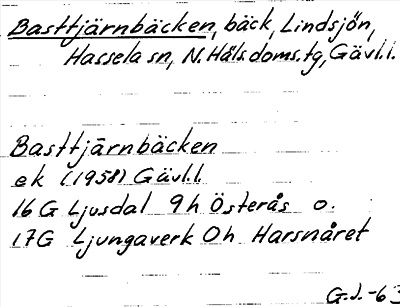 Basttjärnbäcken, bäck, Lindsjön,
Hassela sn, N. Häls. doms.tg, Gävl.l.
Basttjärnbäcken
ek (1958) Gävl.l.
16 G Ljusdal 9h Österås o.
17G Ljungaverk 0h Harsnåret
G.J.-63